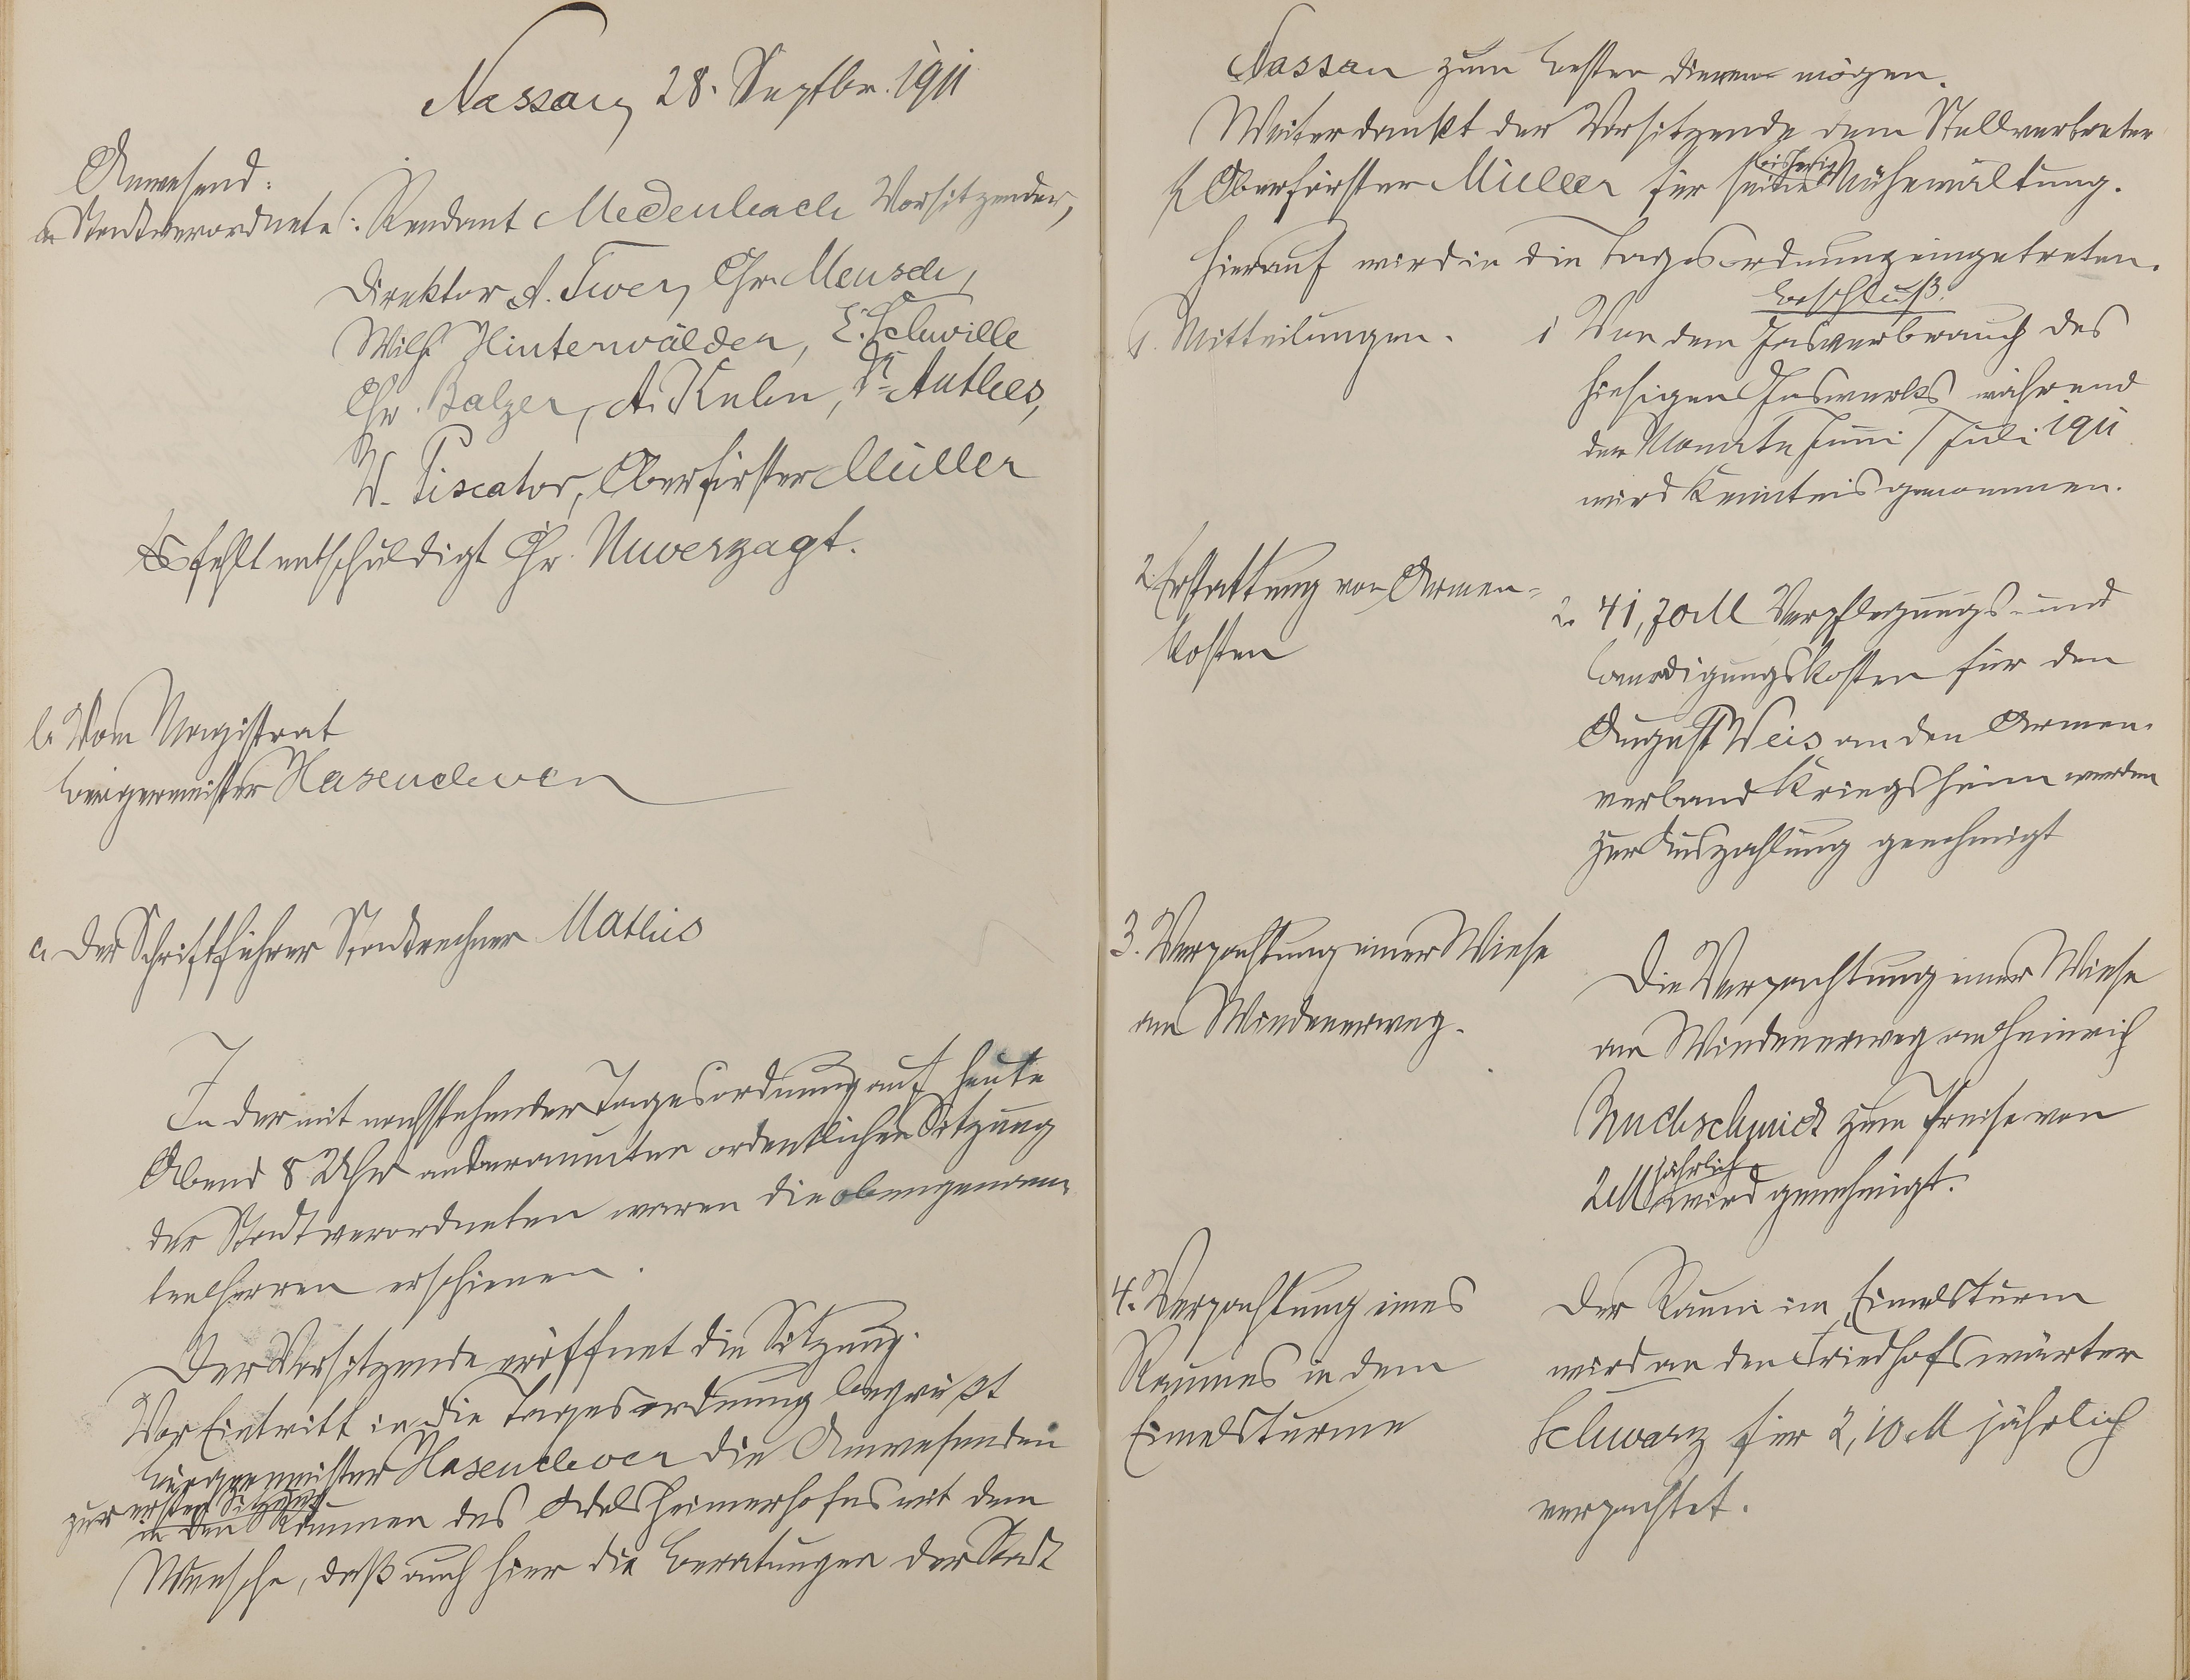 Nassau, 28. Septbr. 1911
Anwesend:
a. Stadtverordnete: Rendant Medenbach Vorsitzender,
Direktor A. Twer, Chr. Mensch,
Wilh. Hinterwälder, E. Schuville
Chr. Balzer, A. Kuhn, Dr. Anthes,
W. Piscator, Oberförster Müller
Es fehlt entschuldigt Chr. Unverzagt.
b. Vom Magistrat
Bürgermeister Hasenclever
c. Der Schriftführer Stadtrechner Mathis
In der mit nachstehender Tagesordnung auf heute
Abend 8 Uhr anberaumten ordentlichen Sitzung
der Stadtverordneten waren die obengenann-
ten Herren erschienen.
Der Vorsitzende eröffnet die Sitzung.
Vor Eintritt in die Tagesordnung begrüßt
Bürgermeister Hasenclever die Anwesenden
zur ersten Sitzung
in den Räumen des Adelsheimerhofes mit dem
Wunsche, daß auch hier die Beratungen der Stadt
Nassau zum besten dienen mögen.
Weiter dankt der Vorsitzende dem Stellvertreter
H. Oberförster Müller für seine bisherige Mühewaltung.
Hierauf wird in die Tagesordnung eingetreten.
Beschluß.
1. Mitteilungen.
1 Von dem Gasverbrauch des
hiesigen Gaswerks während
der Monate Juni / Juli 1911
wird Kenntnis genommen.
2. Erstattung von Armen-
kosten
2. 41,70 M Verpflegungs- und
Beerdigungskosten für den
August Weis an den Armen-
verband Kriegsheim werden
zur Auszahlung genehmigt
3. Verpachtung einer Wiese
am Windenerweg.
Die Verpachtung einer Wiese
am Windenerweg an Heinrich
Buchschmidt zum Preise von
2 M jährlich wird genehmigt.
4. Verpachtung eines
Raumes in dem
Eimelsturme
Der Raum im Eimelsturm
wird an den Friedhofswärter
Schwarz für 2,10 M jährlich
verpachtet.